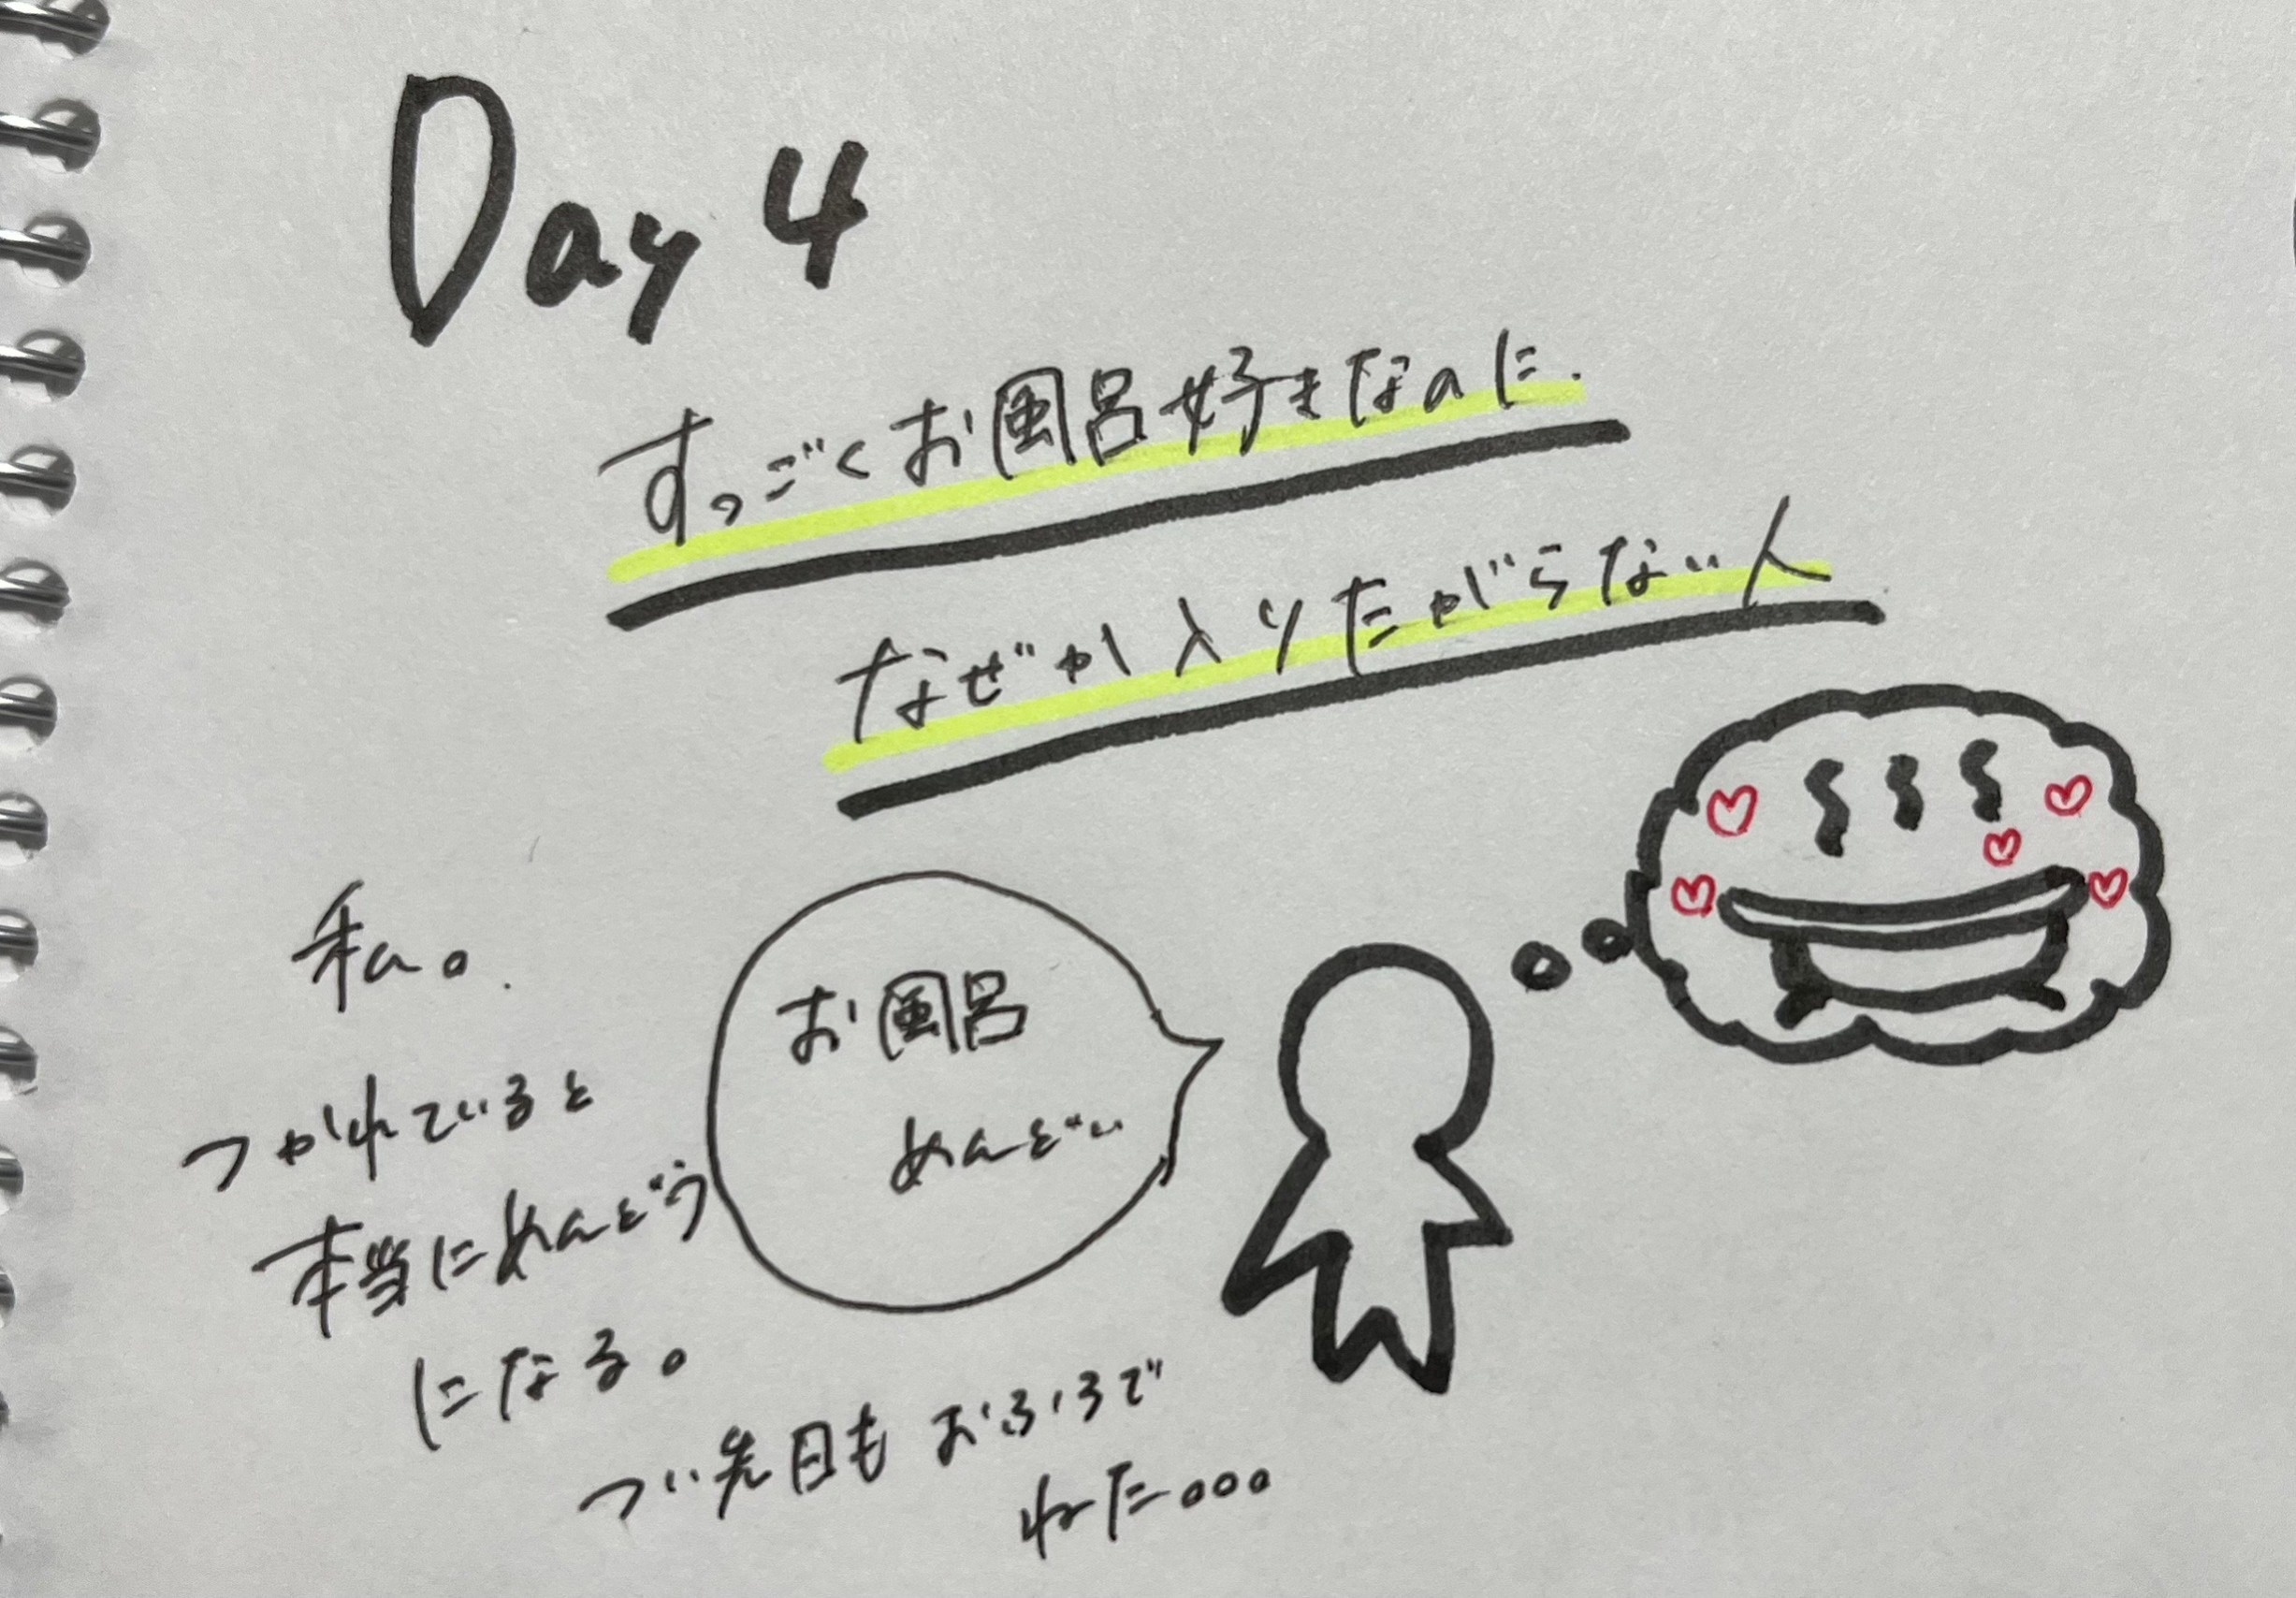 Day 4
すっごくお風呂好きなのに.
なぜか入りたがらない人
私。
つかれていると
本当にめんどう
になる。
お風呂
めんどい
つい先日もおふろで
ねた...